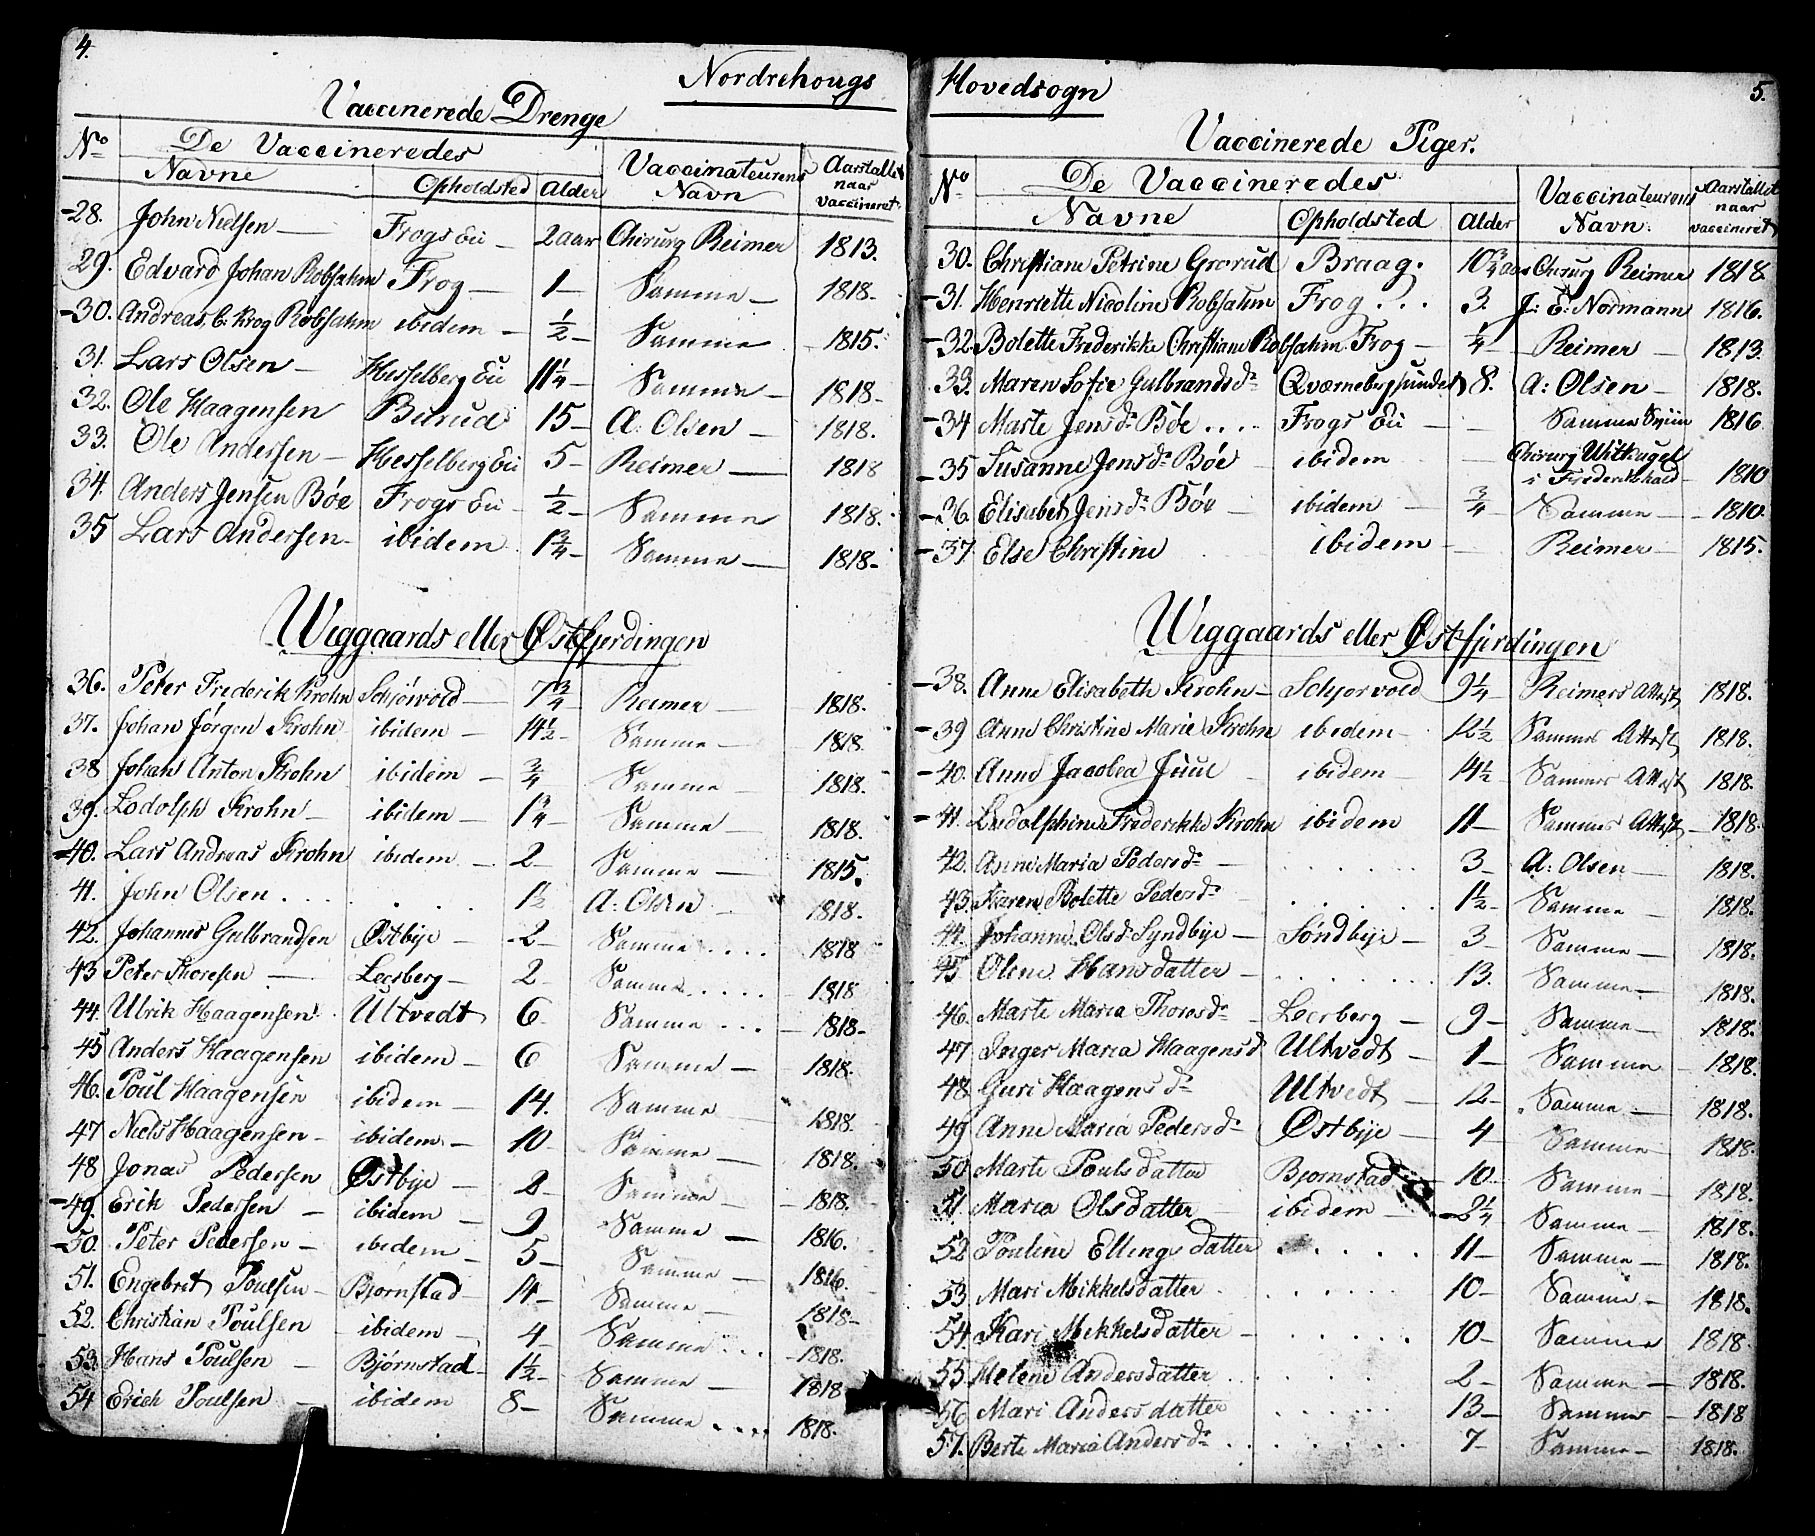 4.
Nordrehougs
Vaccinerede Drenge
No De Vaccineredes Vaccinateurens Navn Aarstallet naar vaccineret
Navne Opholdsted Alder
28. John Nielsen Frogs Eie 2 aar Chirurg Reimer 1813.
29. Edvard Johan Robsahm Frog 1 Samme 1818
30. Andreas C. Krog Robsahm ibidem ½ Samme 1815.
31. Lars Olsen Hesselberg Eie 11¼ Samme 1818
32. Ole Haagensen Burud 15 A: Olsen 1818.
33. Ole Andersen Hesselberg Eie 5 Reimer 1818
34. Anders Jensen Böe Frogs Eie ½ Samme 1818.
35 Lars Andersen ibidem 1¾ Samme 1818
Wiggaards eller Østfjerdingen
36. Peter Frederik Krohn Schjörvold 7¾ Reimer 1818.
37. Johan Jörgen Krohn ibidem 14½ Samme 1818
38 Johan Anton Krohn ibidem ¾ Samme 1818.
39. Lodolph Krohn ibidem 1¾ Samme 1818.
40. Lars Andreas Krohn ibidem 2 Samme 1815.
41. John Olsen 1½ A: Olsen 1818.
42. Johannes Gulbrandsen Østbye 2 Samme 1818
43 Peter Thoresen Leerberg 2 Samme 1818
44. Ulrik Haagensen Ultvedt 6 Samme 1818
45 Anders Haagensen ibidem 6 Samme 1818.
46. Poul Haagensen ibidem 14. Samme 1818.
47 Niels Haagensen ibidem 10 Samme 1818.
48 Jonas Pedersen Østbye 2 Samme 1818.
49. Erik Pedersen ibidem 9 Samme 1816.
50. Peter Pedersen ibidem 5 Samme 1816.
51. Engebret Poulsen Bjørnstad 14 Samme 1818
52. Christian Poulsen ibidem 4 Samme 1818.
53. Hans Poulsen Bjørnstad 1½ Samme 1818
54 Erich Poulsen ibidem 8 Samme 1818.
5.
Hovedsogn
Vaccinerede Piger.
No De Vaccineredes Vaccinateurens Navn: Aarstallet naar vaccineret
Navne Opholdsted Alder
30. Christiane Petrine Grorud Braag. 10¾ aar Chirurg Reimer 1818
31. Henriette Nicoline Robsahm Frog 3 J: E: Normann 1816.
32. Bolette Frederikke Christiane Robsahm Frog ¼ Reimer 1813.
33. Maren Sofie Gulbrandsdr Qværnebergsundet 8. A: Olsen 1818.
34 Marte Jensdr Böe Frogs Eie Samme 1816
35 Susanne Jensdr Böe ibidem Chirurg Witkugel i Frederikshald 1810
36. Elisabeth Jensdr Böe ibidem ¾ Samme 1810.
37. Else Christine ibidem Reimer 1815.
Wiggaards eller Østfjerdingen
38. Anne Elisabeth Krohn Schjorvold 9¼ Reimers Attest 1818.
39 Anne Christine Marie Krohn ibidem 12½ Sammes Attest 1818.
40. Anne Jacobea Juul ibidem 14½ Sammes Attest 1818.
41. Ludolphine Frederikke Krohn ibidem 11 Sammes Attest 1818.
42. Anne Maria Pedersdr 3 A: Olsen 1818.
43. Karen Bolette Pedersdr 1½ Samme 1818.
44. Johanne Olsdr Syndbye Söndbye 3 Samme 1818.
45 Oline Hansdatter 13. Samme 1818.
46. Marte Maria Thoresdr Leerberg 9 Samme 1818.
47 Inger Maria Haagensd Ultvedt 1 Samme 1818.
48. Guri Haagensdr Ultvedt 12 Samme 1818.
49 Anne Maria Pedersdr Østbye 4 Samme 1818.
50. Marte Poulsdatter Bjornstad 10. Samme 1818.
51. Maria Olsdatter ibidem 2¼ Samme 1818.
52 Pouline Ellingsdatter 11 Samme 1818.
53. Mari Mikkelsdatter 10 Samme 1818.
54. Kari Mikkelsdatter 10 Samme 1818
55 Helene Andersdatter 2 Samme 1818.
56 Mari Andersdatter 13 Samme 1818
57. Berte Maria Andersdr 7 Samme 1818.